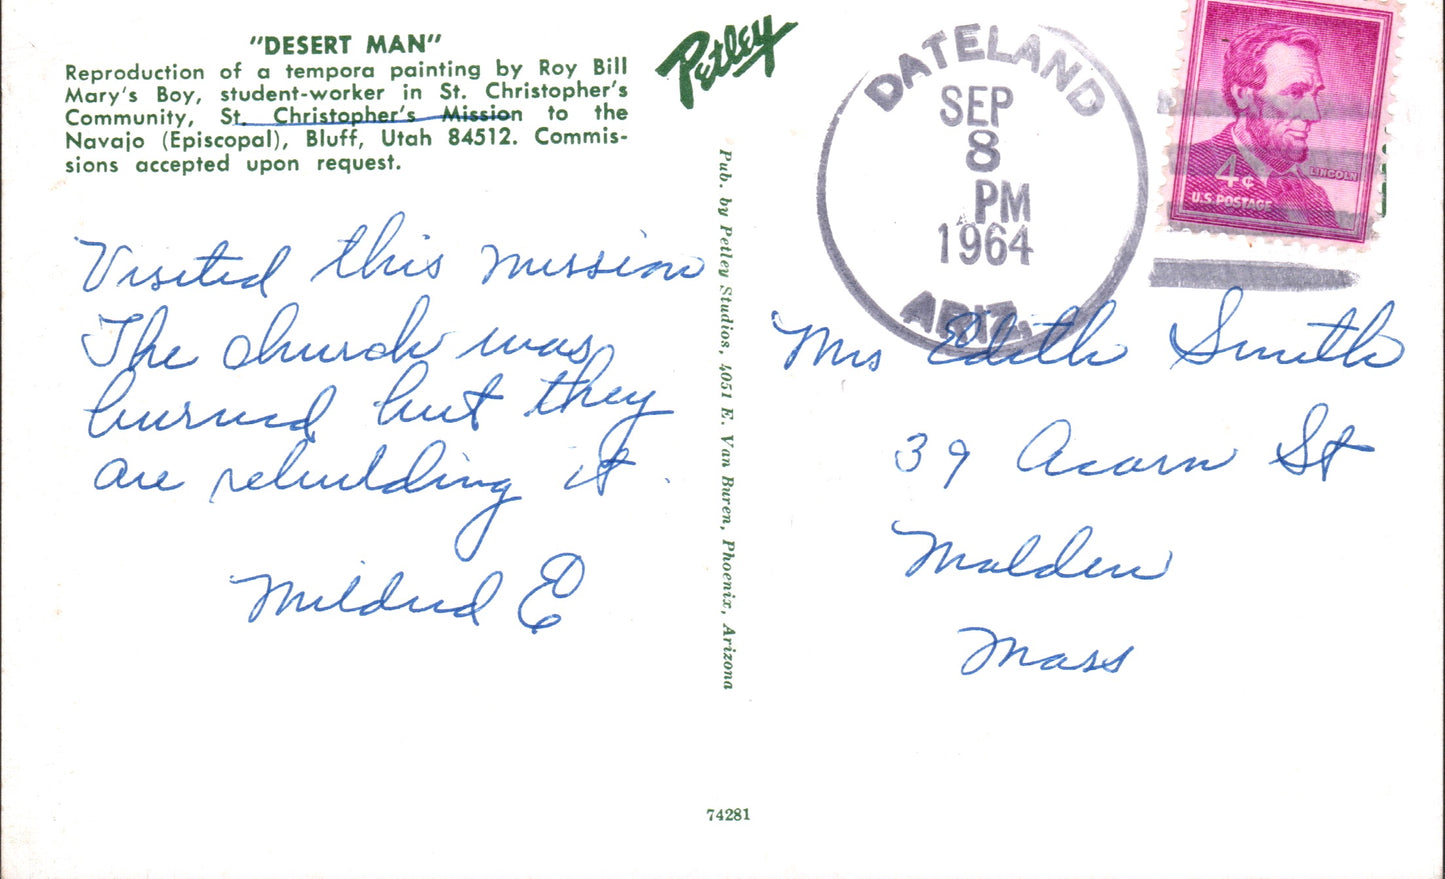 "DESERT MAN"
Reproduction of a tempora painting by Roy Bill
Mary's Boy, student-worker in St. Christopher's
Community, St. Christopher's Mission to the
Navajo (Episcopal), Bluff, Utah 84512. Commis-
sions accepted upon request.
Visited this mission
The church was
burned but they
are rebuilding it.
Mildred E
Petley
Pub. by Petley Studios, 4051 E. Van Buren, Phoenix, Arizona
74281
DATELAND
SEP
8
PM
1964
ARIZ.
4¢
LINCOLN
U.S. POSTAGE
Mrs Edith Smith
39 Acorn St
Malden
Mass